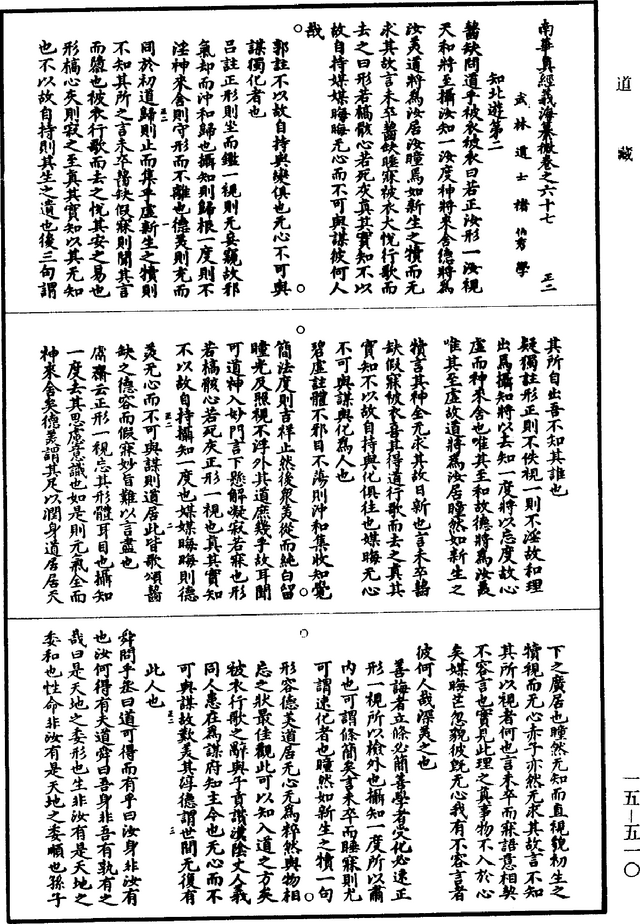 南華真經義海纂微卷之六十七　正二
武林道士褚伯秀學
知北遊第二
齧缺問道乎被衣被衣曰若正汝形一汝視
天和將至攝汝知一汝度神將來舍德將為
汝美道將為汝居汝瞳焉如新生之犢而无
求其故言未卒齧缺睡寐被衣大悅行歌而
去之曰形若槁骸心若死灰真其實知不以
故自持媒媒晦晦无心而不可與謀彼何人
哉
郭註不以故自持與變俱也无心不可與
謀獨化者也
呂註正形則坐而鑑一視則无妄窺故邪
氣却而沖和歸也攝知則歸根一度則不
淫神來舍則守形而不離也德美則充而
同於初道歸則止而集乎虛新生之犢則
不知其所之言未卒齧缺假寐則聞其言
而墮也被衣行歌而去之悅其安之易也
形槁心灰則寂之至真其實知以其无知
也不以故自持則其生之遺也後三句謂
其所自出吾不知其誰也
疑獨註形正則不佚視一則不淫故和理
出焉攝知將以去知一度將以忘度故心
虛而神來舍也唯其至和故德將為汝美
唯其至虛故道將為汝居瞳然如新生之
犢言其神全无求其故日新也言未卒齧
缺假寐被衣喜其得道行歌而去之真其
實知不以故自持與化俱往也媒晦无心
不可與謀與化為人也
碧虛註體不邪目不蕩則沖和集收知覺
簡法度則吉祥止然後眾美從而純白留
瞳光反照視不浮外其道庶幾乎故耳聞
可道神入妙門言下懸解凝寂若寐也形
若槁骸心若死灰正形一視也真其實知
不以故自持攝知一度也媒媒晦晦則德
美无心而不可與謀則道居此皆歌頌齧
缺之德容而假寐妙旨難以言盡也
鬳齋云正形一視忘其形體耳目也攝知
一度去其思慮意識也如是則元氣全而
神來舍矣德美謂其足以潤身道居居天
下之廣居也瞳然无知而直視貌初生之
犢視而无心赤子亦然无求其故言不知
其所以視者何也言未卒而寐語意相契
不容言也實見此理之真事物不入於心
矣媒晦芒忽貌彼既无心我有不容言者
彼何人哉深美之也
善誨者立條必簡善學者受化必速正
形一視所以檢外也攝知一度所以肅
內也可謂條簡矣言未卒而睡寐則允
可謂速化者也瞳然如新生之犢一句
形容德美道居无心无為粹然與物相
忘之狀最佳觀此可以知入道之方矣
被衣行歌之辭與子貢讚漢陰丈人義
同人患在為謀府知主令也无心而不
可與謀故歎美其淳德謂世間无復有
此人也
舜問乎丞曰道可得而有乎曰汝身非汝有
也汝何得有夫道舜曰吾身非吾有孰有之
哉曰是天地之委形也生非汝有是天地之
委和也性命非汝有是天地之委順也孫子
道藏
一五－五一〇